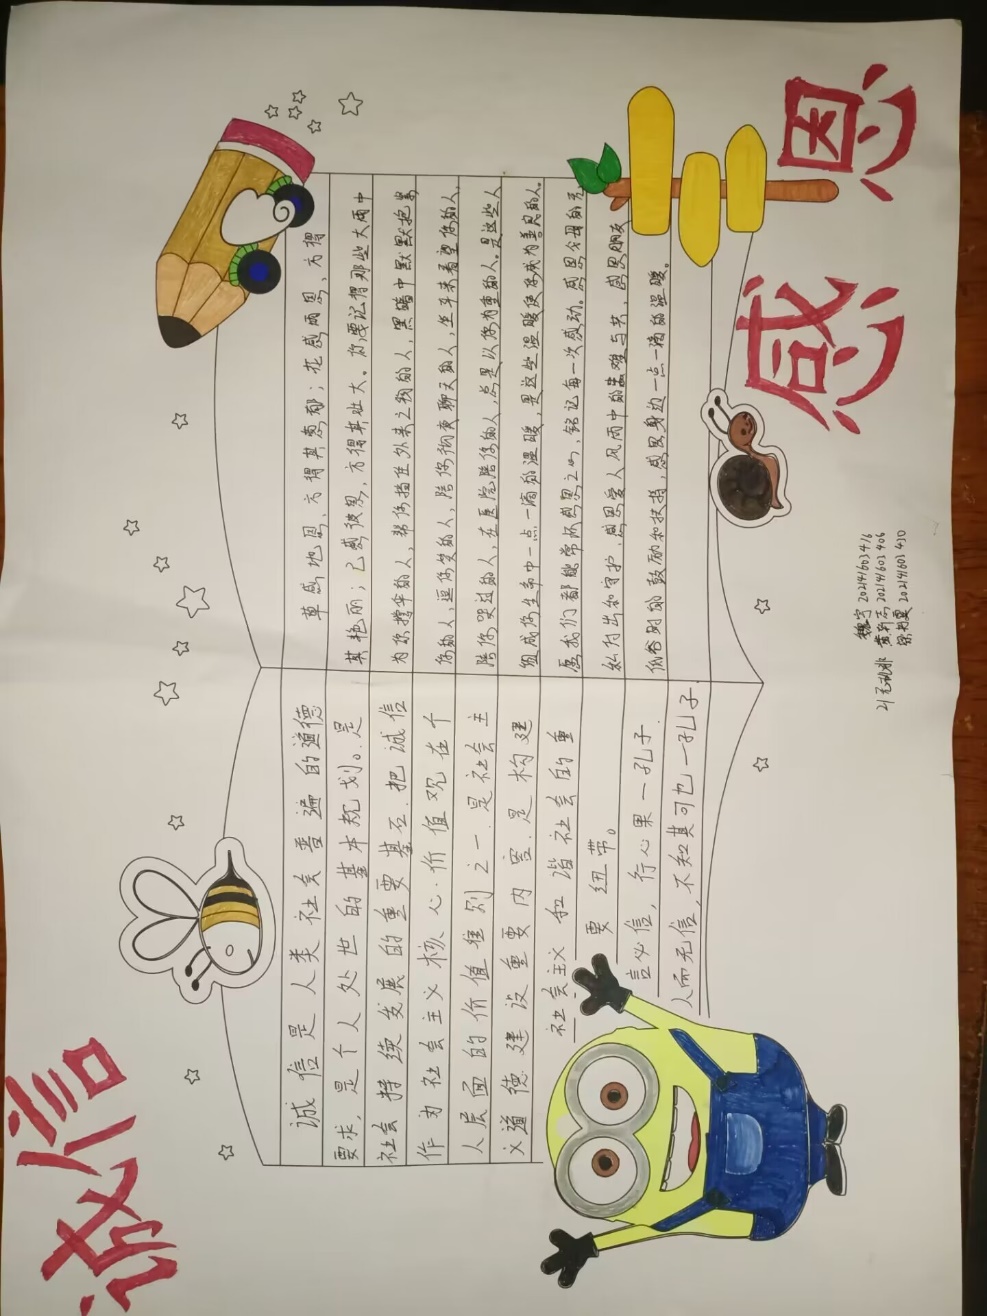 诚信
诚信是人类社会普遍的道德
要求，是个人处世的基本规划。是
社会持续发展的重要基石.把诚信
作为社会主义核心.价值观在个
人层面的价值准则之一.是社会主
义道德建设重要内容.是构建
社会主义和谐社会的重
要纽带。
言必信，行必果—孔子.
人而无信，不知其可也—孔子
感恩
草感地恩，方得其葱郁；花感雨恩，方得
其艳丽；己感彼恩，方得其壮大。你要记得那些大雨中
为你撑伞的人，帮你挡住外来之物的人，黑暗中默默抱紧
你的人，逗你笑的人，陪你彻夜聊天的人，坐车来看望你的人，
陪你哭过的人，在医院陪你的人，总是以你为重的人。是这些人
组成你生命中一点一滴的温暖，是这些温暖使你成为善良的人。
愿我们都能常怀感恩之心，铭记每一次感动。感恩父母的无
私付出和守护，感恩爱人风雨中的患难与共，感恩朋友
低谷时的鼓励和扶持，感恩身边一点一滴的温暖。
魏宁 202141603416
21无机非 黄新志 202141603406
202141603430